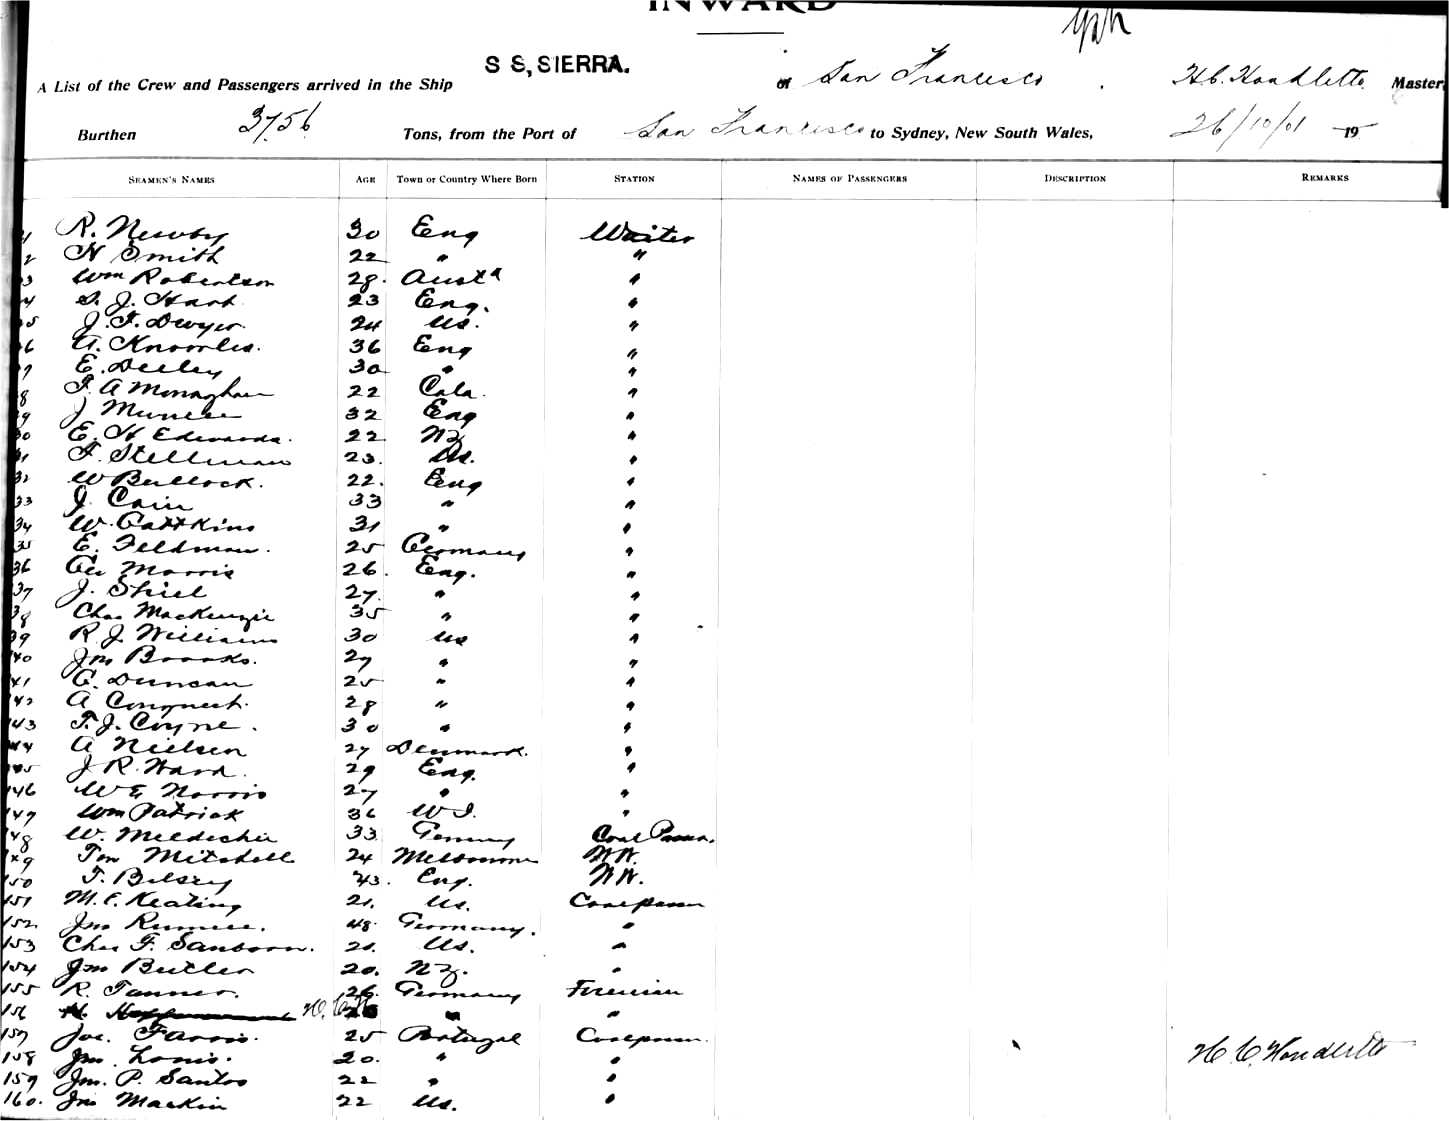 INWARD
S S, SIERRA.
A List of the Crew and Passengers arrived in the Ship of San Francisco, H.C. Houdlette Master,
Burthen 3756 Tons, from the Port of San Francisco to Sydney, New South Wales, 26/10/01 19
SEAMEN'S NAMES AGE Town or Country Where Born STATION NAMES OF PASSENGERS DESCRIPTION REMARKS
1 R. Newby 30 Eng Waiter
2 H Smith 22 " "
3 Wm Robertson 28. Austa "
4 S. J. Hart 23 Eng. "
5 J. F. Dwyer. 24 US. "
6 A. Knowles. 36 Eng "
7 E. Deeley 30 " "
8 F. A Monaghan 22 Cala. "
9 J 32 Eng "
30 E. H Edwards. 22 NZ "
31 F. Stellman 23. US. "
32 W Bullock. 22. Eng "
33 J. Cain 33 " "
34 W. 31 " "
35 E. Feldman. 25 Germany "
36 Morris 26. Eng. "
37 J. Shiel 27. " "
38 Chas MacKenzie 35 " "
39 R. J. Williams 30 US "
40 Jno Brooks. 27 " "
41 C. Duncan 25 " "
42 A Conquest. 28 " "
143 T. J. Coyne. 30 " "
144 A Nielsen 27 Denmark. "
145 J R. Ward. 29 Eng. "
146 W E Norris 27 " "
147 Wm Patrick 36 W I. "
148 W. 33 Germany Coal Passer.
149 Tom Mitchell 24 Melbourne W.W.
150 T. Belsey 43. Eng. W.W.
151 M. C. Keating 21. US. Coalpasser
152 Jno 48. Germany. "
153 Chas F. Sanborn. 21. US. "
154 Jno Butler 20. NZ. "
155 R. Tanner. 26. Germany Fireman
156 H. H.C.H " "
157 Joe. Farris. 25 Portugal Coalpasser.
158 Jno. Louis. 20. " " H C Houdlette
159 Jno. P. Santos 22 " "
160. Jno Mackin 22 US. "